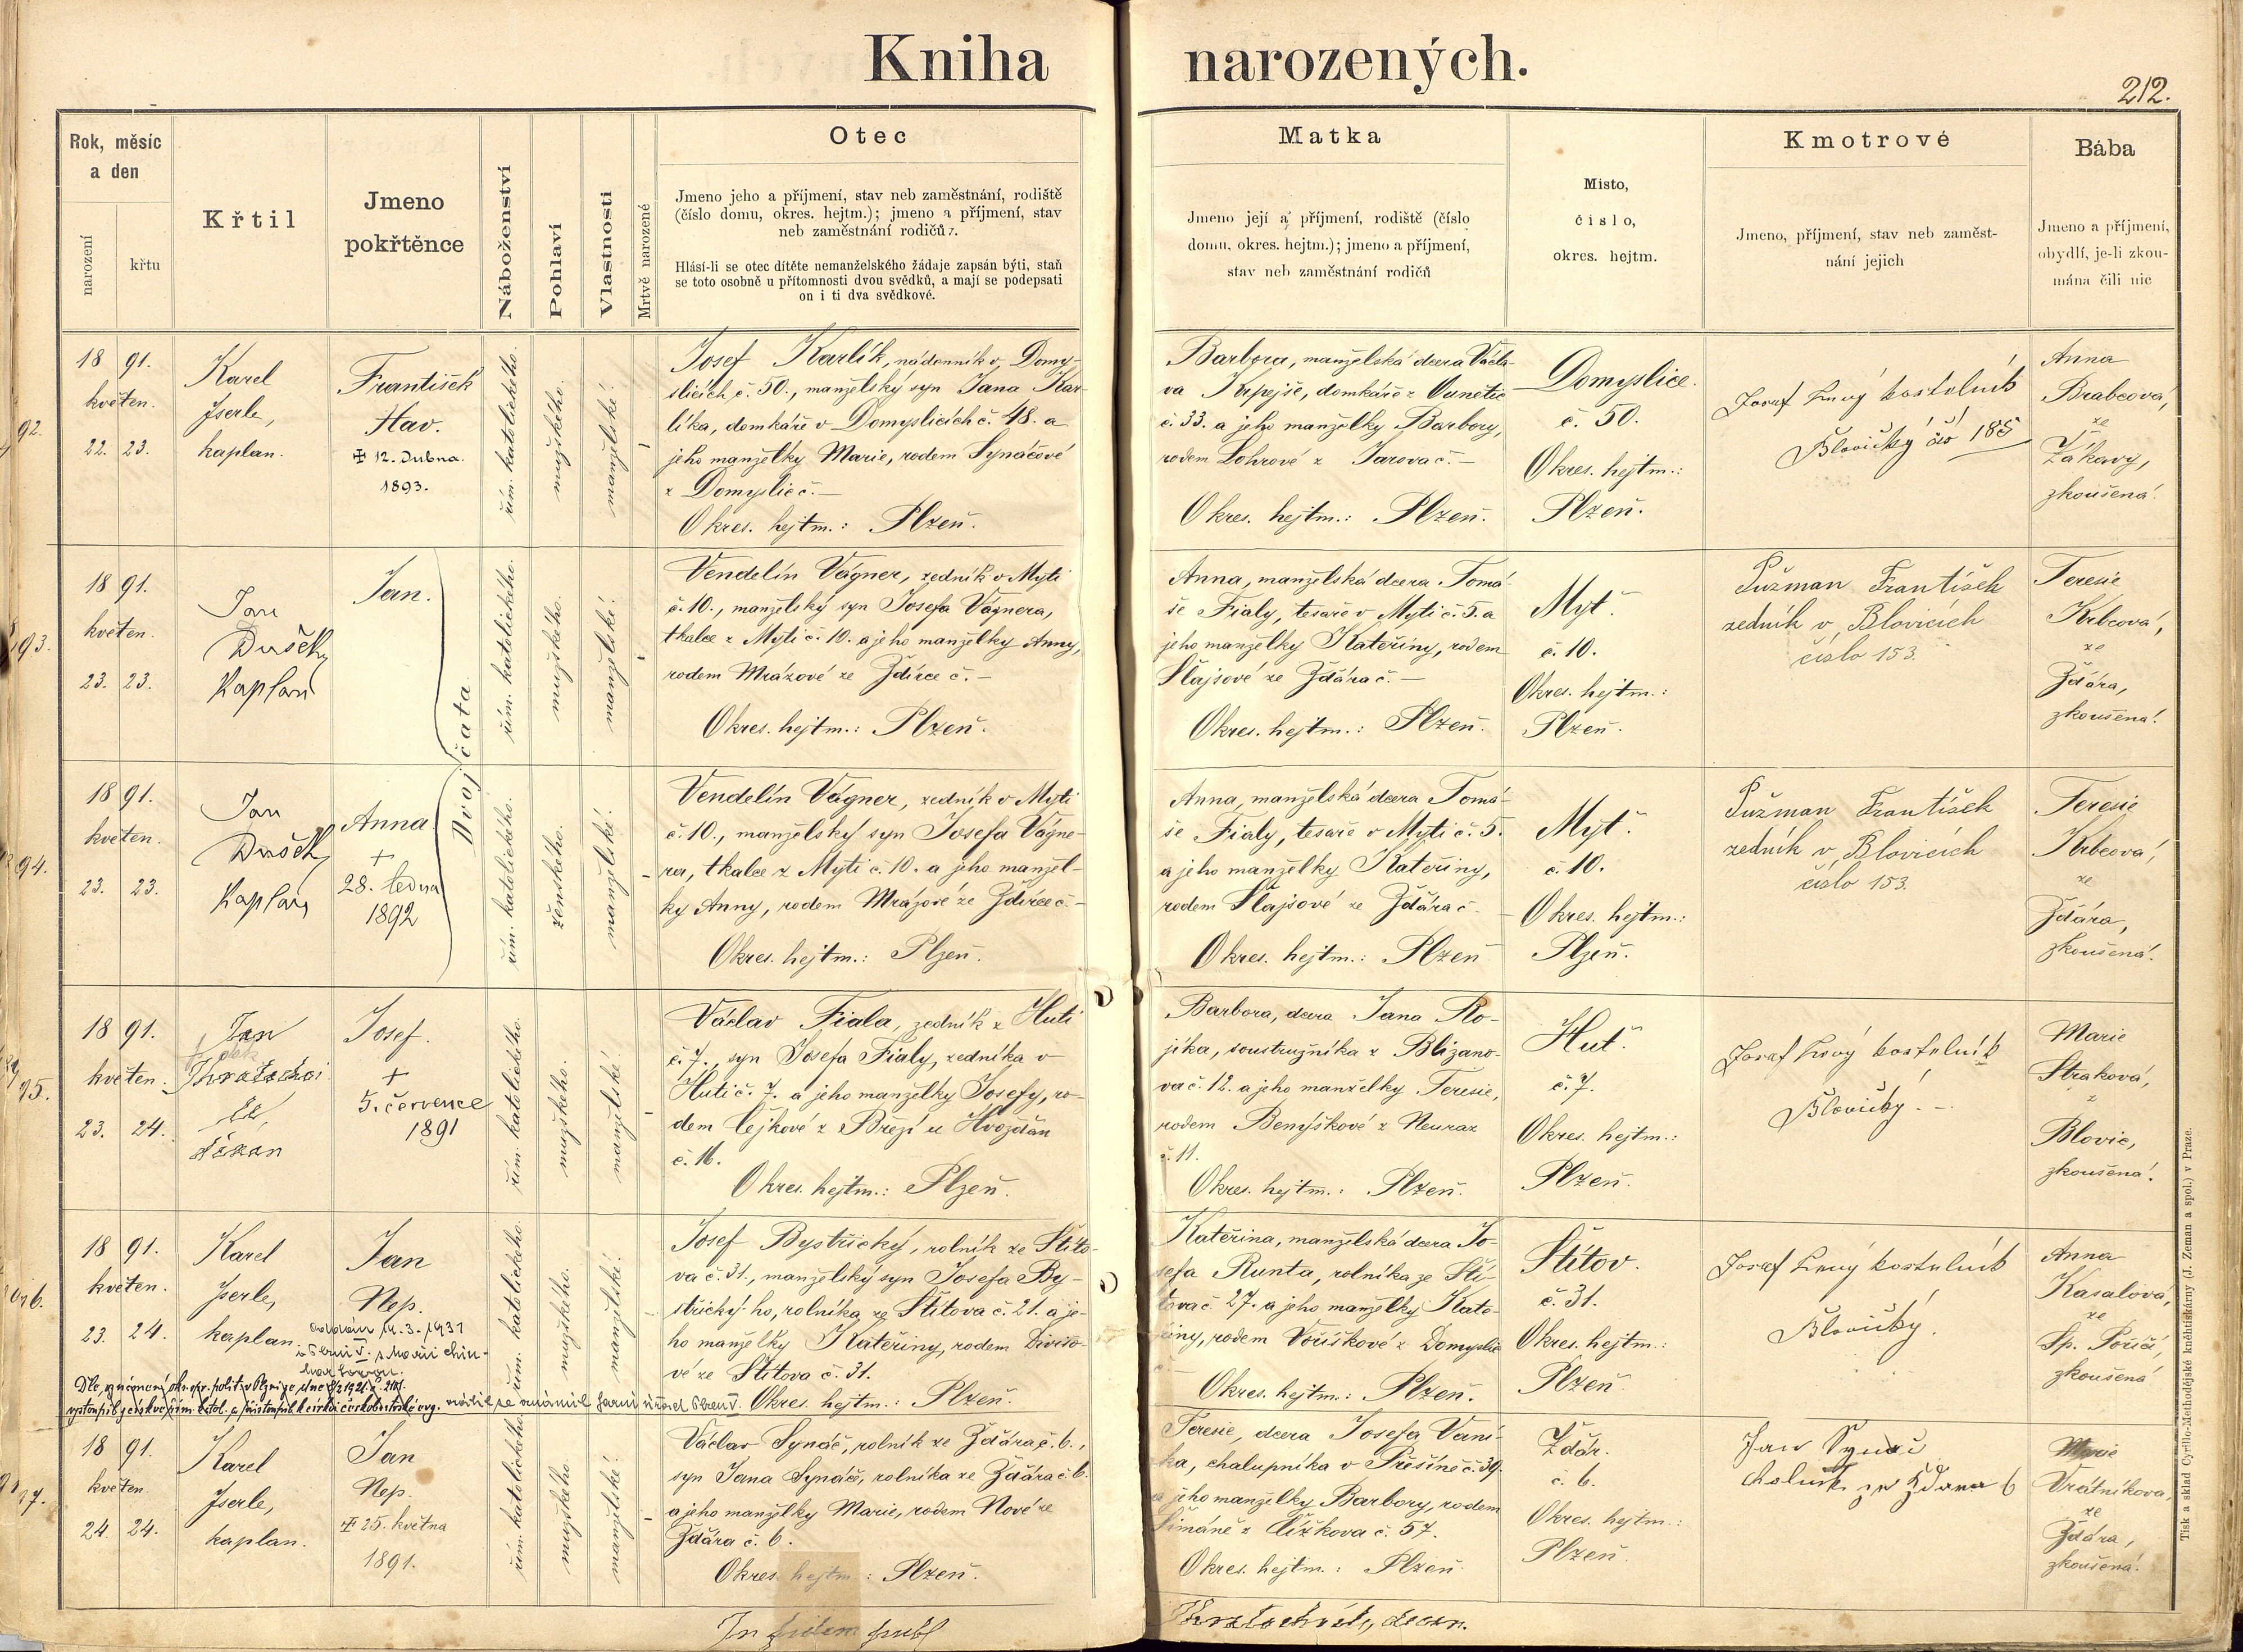 Kniha narozených.
212.
Rok, měsíc
a den
narození
křtu
Křtil
Jmeno
pokřtěnce
Náboženství
Pohlaví
Vlastnosti
Mrtvě narozené
Otec
Jmeno jeho a příjmení, stav neb zaměstnání, rodiště
(číslo domu, okres. hejtm.); jmeno a příjmení, stav
neb zaměstnání rodičů.
Hlásí-li se otec dítěte nemanželského žádaje zapsán býti, staň
se toto osobně u přítomnosti dvou svědků, a mají se podepsati
on i ti dva svědkové.
Matka
Jmeno její a příjmení, rodiště (číslo
domu, okres. hejtm.); jmeno a příjmení,
stav neb zaměstnání rodičů
Místo,
číslo,
okres. hejtm.
Kmotrové
Jmeno, příjmení, stav neb zaměst-
nání jejich
Bába
Jmeno a příjmení,
obydlí, je-li zkou-
mána čili nic
92.
18 91.
květen.
22. 23.
Karel
Iserle,
kaplan.
František
Hav.
12. Dubna
1893.
řím. katolického.
mužského.
manželské.
Josef Karlík, nádenník v Domy-
slicích č. 50., manželský syn Jana Kar-
líka, domkáře v Domyslicích č. 48. a
jeho manželky Marie, rodem Synáčové
z Domyslic č. —
Okres. hejtm.: Plzeň.
Barbora, manželská dcera Václa-
va, domkáře z
č. 33. a jeho manželky Barbory,
rodem Lohrové z Jarova č. —
Okres. hejtm.: Plzeň.
Domyslice.
č. 50.
Okres. hejtm.:
Plzeň.
Josef kostelník
Blovický čís 185
Anna
Brabcová,
ze
Žákavy,
zkoušená.
93.
18 91.
květen.
23. 23.
Jan
Dušek
Kaplan
Jan.
Dvojčata
řím. katolického.
mužského.
manželské.
Vendelín Vágner, zedník v Mýti
č. 10., manželský syn Josefa Vágnera,
tkalce z Mýti č. 10. a jeho manželky Anny,
rodem Mrázové ze Ždírce č. —
Okres. hejtm.: Plzeň.
Anna, manželská dcera Tomá-
še Fialy, tesaře v Mýti č. 5. a
jeho manželky Kateřiny, rodem
Šlajsové ze Ždára č. —
Okres. hejtm.: Plzeň.
Mýť.
č. 10.
Okres. hejtm.:
Plzeň.
Pužman František
zedník v Blovicích
číslo 153.
Teresie
Krbcová,
ze
Ždára,
zkoušená.
94.
18 91.
květen.
23. 23.
Jan
Dušek
Kaplan
Anna
+
28. ledna
1892
řím. katolického.
ženského.
manželské.
Vendelín Vágner, zedník v Mýti
č. 10., manželský syn Josefa Vágne-
ra, tkalce z Mýti č. 10. a jeho manžel-
ky Anny, rodem Mrázové ze Ždírce č. —
Okres. hejtm.: Plzeň.
Anna, manželská dcera Tomá-
še Fialy, tesaře v Mýti č. 5.
a jeho manželky Kateřiny,
rodem Šlajsové ze Ždára č. —
Okres. hejtm.: Plzeň
Mýť.
č. 10.
Okres. hejtm.:
Plzeň.
Pužman František
zedník v Blovicích
číslo 153.
Teresie
Krbcová,
ze
Ždára,
zkoušená.
95.
18 91.
květen.
23. 24.
Jan
děkan
Josef.
+
5. července
1891
řím. katolického.
mužského.
manželské.
Václav Fiala, zedník z Huti
č. 7., syn Josefa Fialy, zedníka v
Huti č. 7. a jeho manželky Josefy, ro-
dem Čejkové z Březí u Hvožďan
č. 16.
Okres. hejtm.: Plzeň.
Barbora, dcera Jana Ro-
jíka, soustružníka z Blizano-
va č. 12. a jeho manželky Teresie,
rodem Benýškové z Neuraz
č. 11.
Okres. hejtm.: Plzeň.
Huť.
č. 7.
Okres. hejtm.:
Plzeň.
Josef kostelník
Blovický. —
Marie
Straková,
z
Blovic,
zkoušená.
96.
18 91.
květen.
23. 24.
Karel
Iserle,
kaplan.
Jan
Nep.
oddán 14.-3.-1931
Josef Bystřický, rolník ze Štíto-
va č. 31., manželský syn Josefa By-
střického, rolníka ze Štítova č. 21. a je-
ho manželky Kateřiny, rodem Diviso-
vé ze Štítova č. 31.
Okres. hejtm.: Plzeň.
řím. katolického.
mužského.
manželské.
Kateřina, manželská dcera Jo-
sefa Runta, rolníka ze Ští-
tova č. 27. a jeho manželky Kate-
řiny, rodem Voříškové z Domyslic
č —
Okres. hejtm.: Plzeň.
Štítov.
č. 31.
Okres. hejtm.:
Plzeň.
Josef kostelník
Blovický.
Anna
Kasalová,
ze
Sp. Poříčí,
zkoušená
97.
18 91.
květen.
24. 24.
Karel
Iserle,
kaplan.
Jan
Nep.
25. května
1891.
řím. katolického.
mužského.
manželské.
Václav Synáč, rolník ze Ždára č. 6.,
syn Jana Synáče, rolníka ze Ždára č. 6.
a jeho manželky Marie, rodem Nové ze
Ždára č. 6.
Okres. hejtm.: Plzeň.
Teresie, dcera Josefa Vaní-
ka, chalupníka v Přešíně č. 39.
a jeho manželky Barbory, rodem
Šimáně z Čížkova č. 57.
Okres. hejtm.: Plzeň.
Ždár.
č. 6.
Okres. hejtm.:
Plzeň.
Jan Synáč
rolník ze Ždara 6
Marie
Vrátníkova,
ze
Ždára,
zkoušená.
In fidem publ
decan.
Tisk a sklad Cyrillo-Methodějské knihtiskárny (J. Zeman a spol.) v Praze.